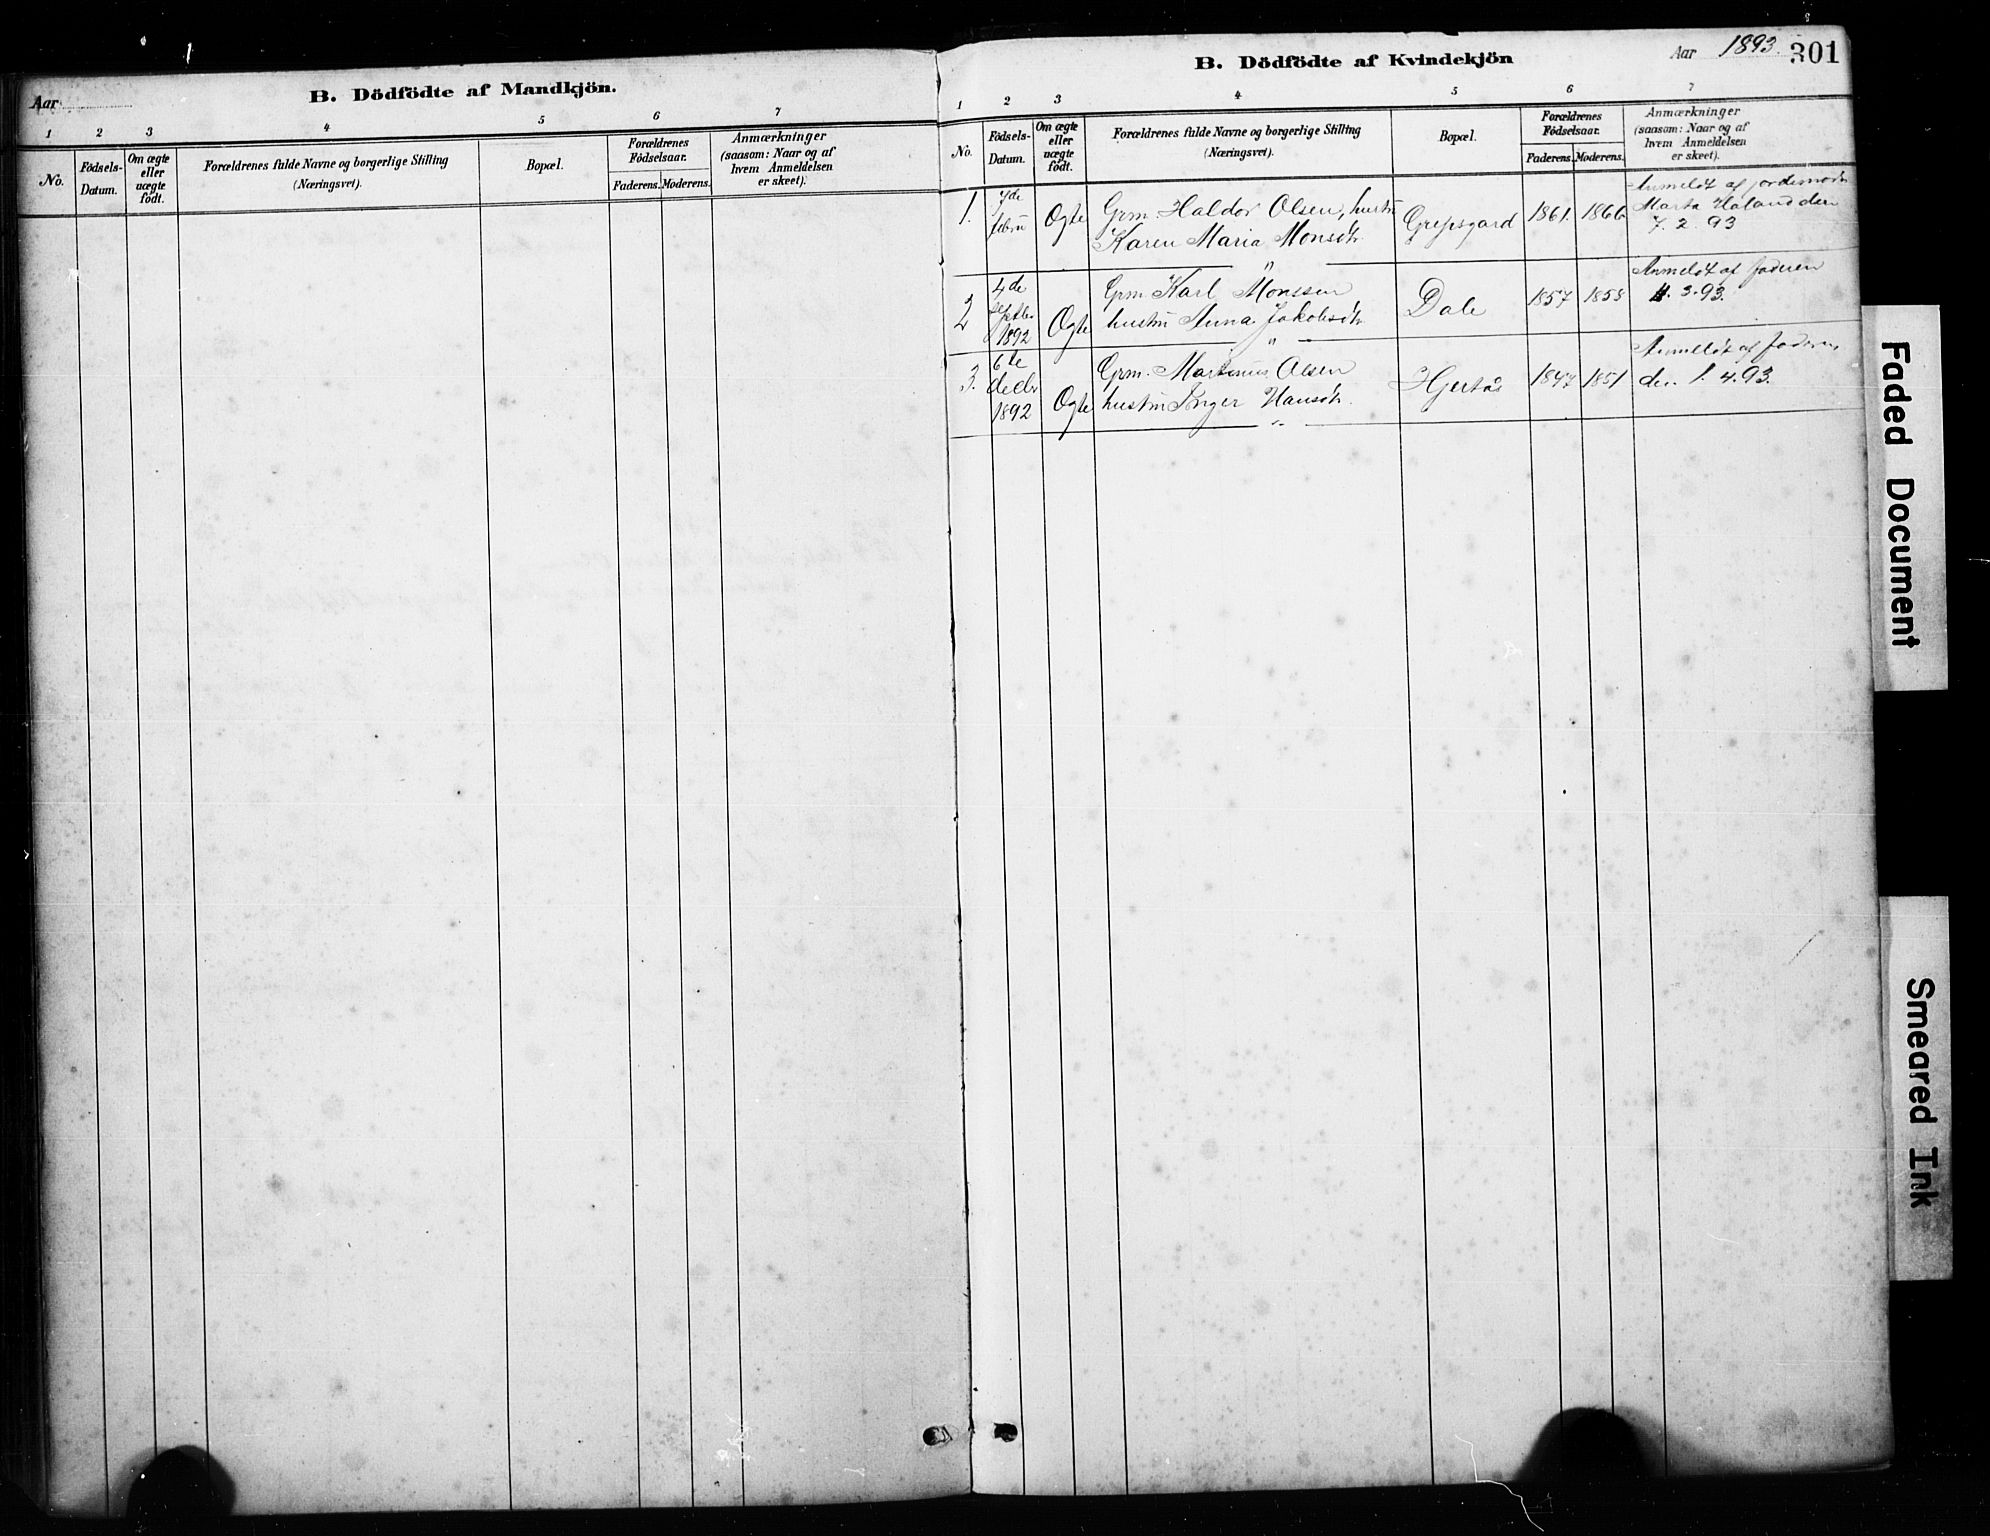 Aar
B. Dödfödte af Mandkjön.
1 2 3 4 5 6 7
No.
Födsels-
Datum.
Om ægte
eller
uægte
födt.
Forældrenes fulde Navne og borgerlige Stilling
(Næringsvei).
Bopæl.
Forældrenes
Födselsaar.
Faderens. Moderens.
Anmærkninger
(saasom: Naar og af
hvem Anmeldelsen
er skeet).
B. Dödfödte af Kvindekjön
Aar 1893. 301
1 2 3 4 5 6 7
No.
Födsels-
Datum.
Om ægte
eller
uægte
födt.
Forældrenes fulde Navne og borgerlige Stilling
(Næringsvei).
Bopæl.
Forældrenes
Födselsaar.
Faderens. Moderens.
Anmærkninger
(saasom: Naar og af
hvem Anmeldelsen
er skeet).
1.
7de
febru
Ogte
Grm. Haldor Olsen, hustru
Karen Maria Monsdtr
Grepsgard
1861. 1866
Anmeldt af jordemoder
Marta Haland den
7. 2. 93
2
4de
Septbr
1892
Ogte
Grm. Karl Monssen
hustru Anna Jakobsdtr
Dale
1857 1858
Anmeldt af faderen
3. 93.
3.
6te
decbr
1892
Ogte
Grm. Martinus Olsen
hustru Inger Hansdtr.
Hjertås
1847 1851
Anmeldt af faderen
den 1. 4. 93.
Faded Document
Smeared Ink